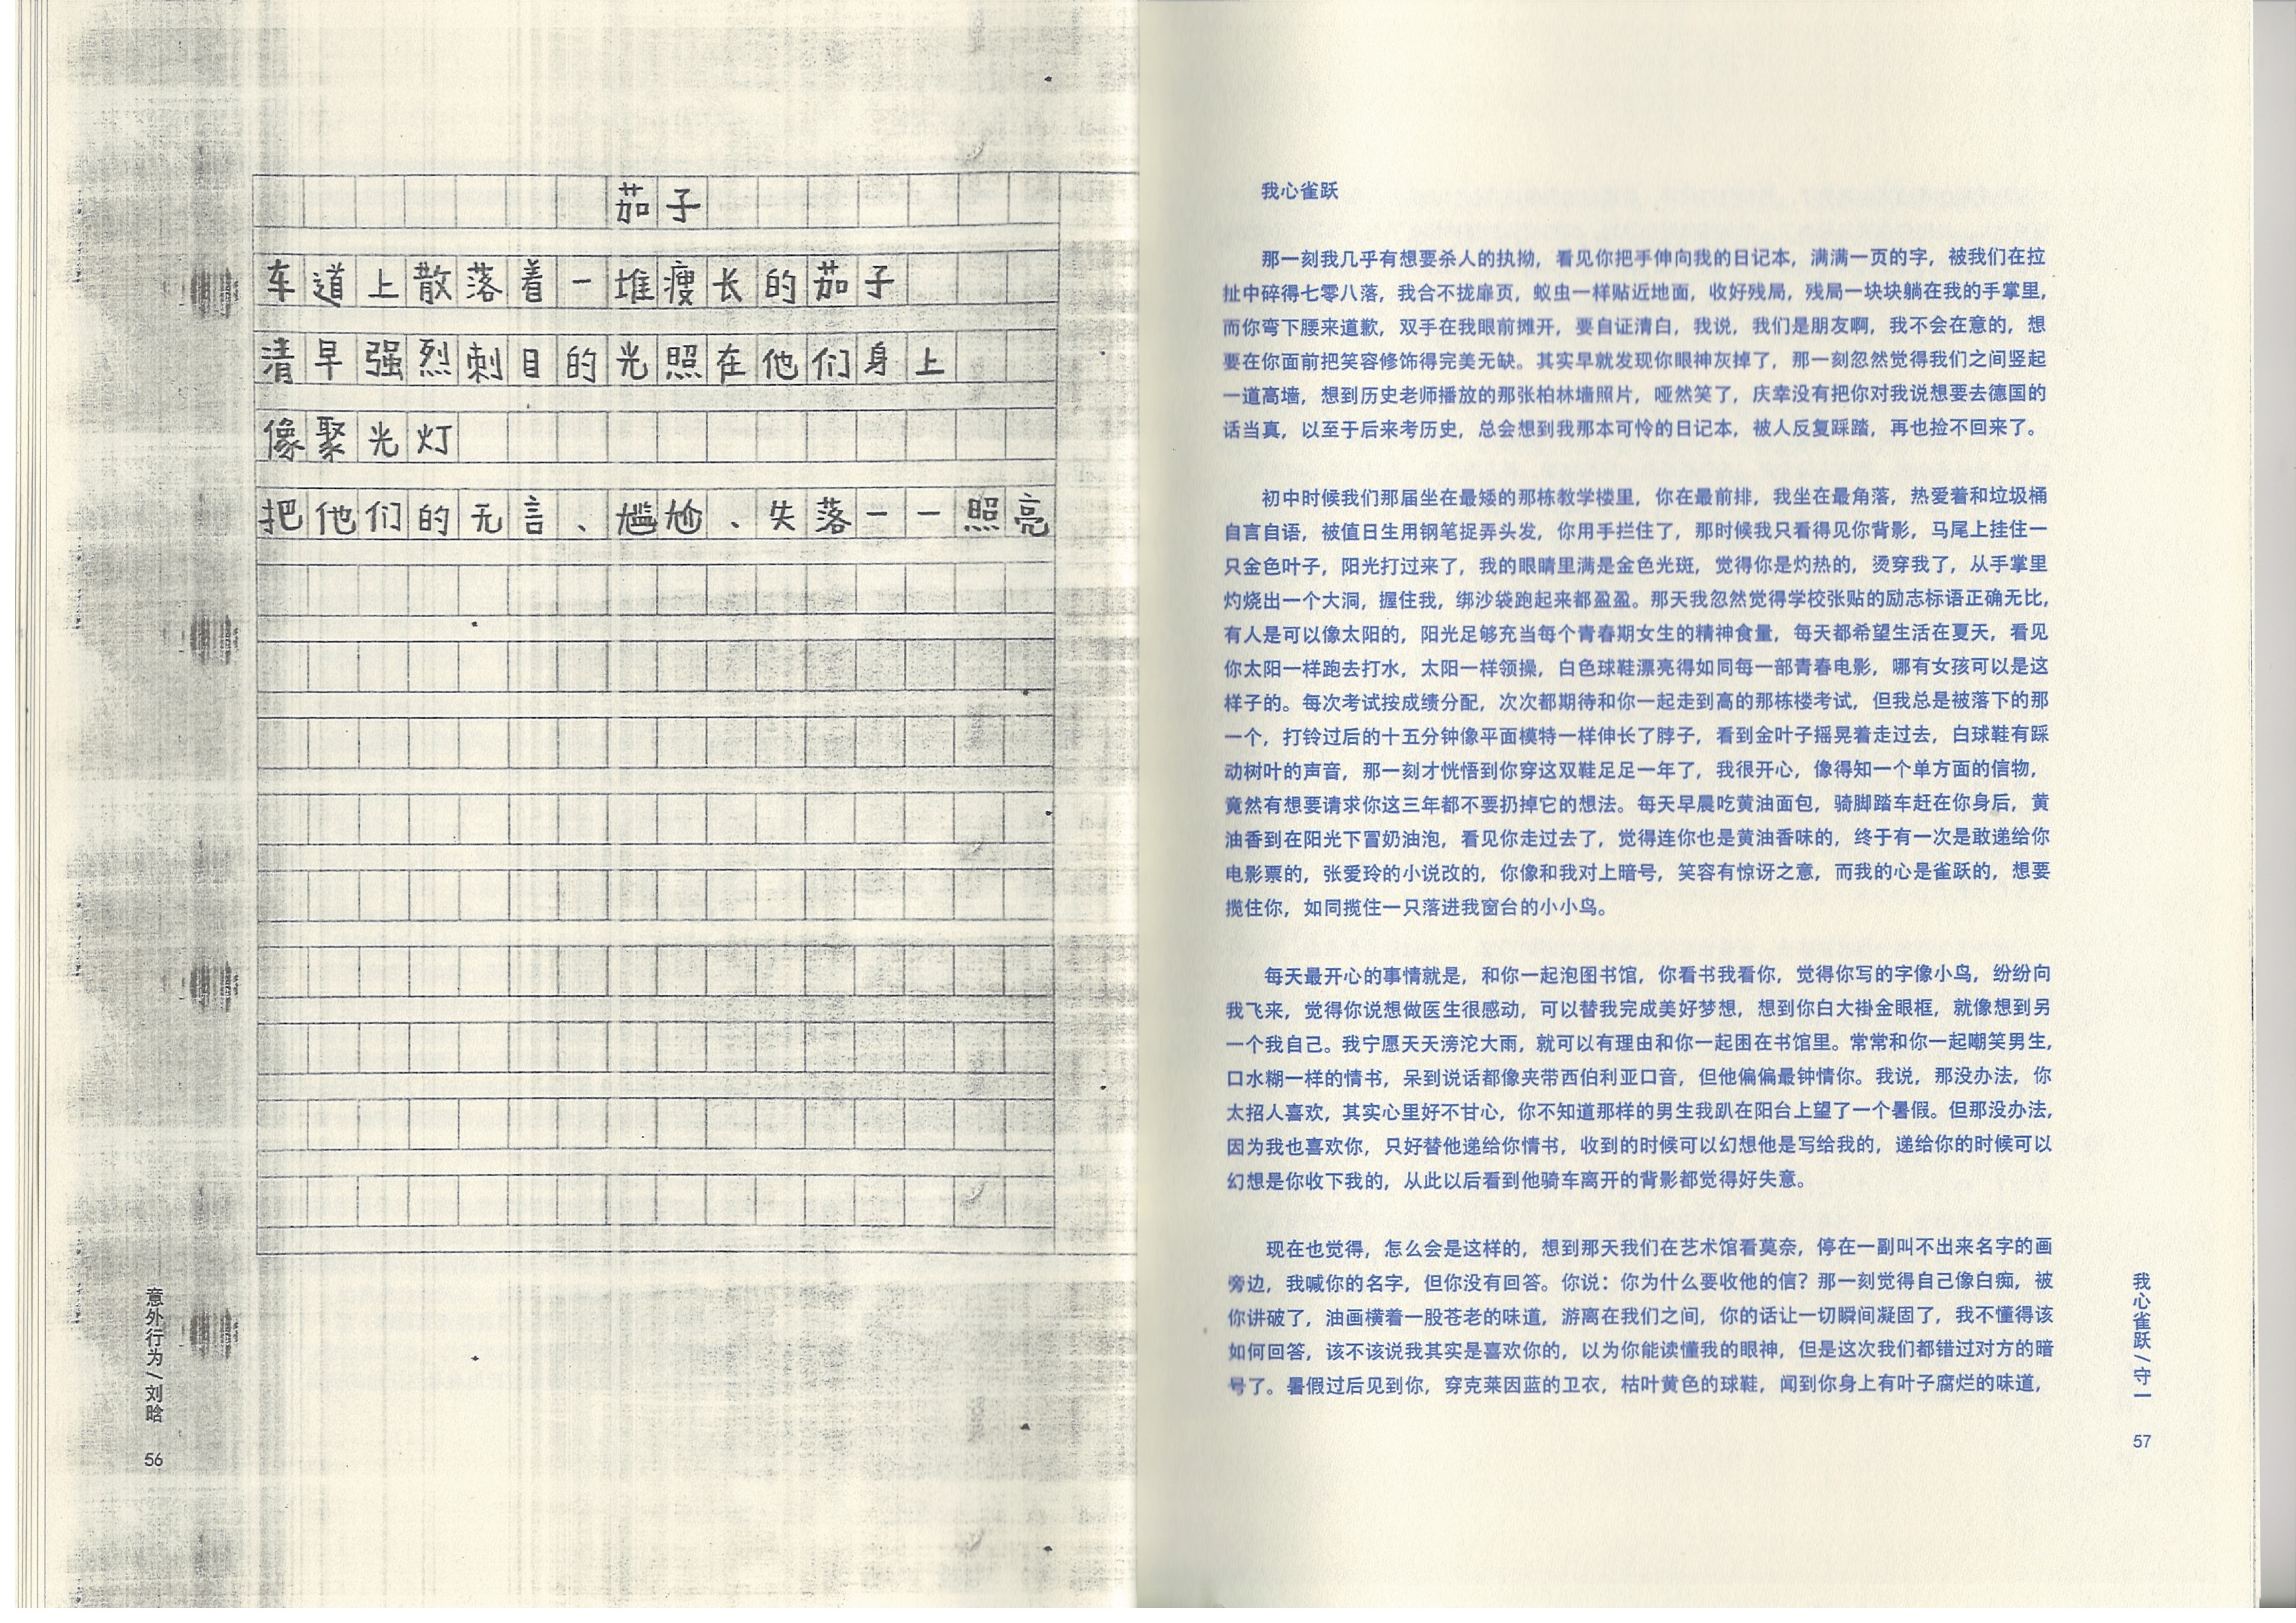 茄子
车道上散落着一堆瘦长的茄子
清早强烈刺目的光照在他们身上
像聚光灯
把他们的无言、尴尬、失落一一照亮
意外行为/刘晗
56
我心雀跃
那一刻我几乎有想要杀人的执拗，看见你把手伸向我的日记本，满满一页的字，被我们在拉
扯中碎得七零八落，我合不拢扉页，蚁虫一样贴近地面，收好残局，残局一块块躺在我的手掌里，
而你弯下腰来道歉，双手在我眼前摊开，要自证清白，我说，我们是朋友啊，我不会在意的，想
要在你面前把笑容修饰得完美无缺。其实早就发现你眼神灰掉了，那一刻忽然觉得我们之间竖起
一道高墙，想到历史老师播放的那张柏林墙照片，哑然笑了，庆幸没有把你对我说想要去德国的
话当真，以至于后来考历史，总会想到我那本可怜的日记本，被人反复踩踏，再也捡不回来了。
初中时候我们那届坐在最矮的那栋教学楼里，你在最前排，我坐在最角落，热爱着和垃圾桶
自言自语，被值日生用钢笔捉弄头发，你用手拦住了，那时候我只看得见你背影，马尾上挂住一
只金色叶子，阳光打过来了，我的眼睛里满是金色光斑，觉得你是灼热的，烫穿我了，从手掌里
灼烧出一个大洞，握住我，绑沙袋跑起来都盈盈。那天我忽然觉得学校张贴的励志标语正确无比，
有人是可以像太阳的，阳光足够充当每个青春期女生的精神食量，每天都希望生活在夏天，看见
你太阳一样跑去打水，太阳一样领操，白色球鞋漂亮得如同每一部青春电影，哪有女孩可以是这
样子的。每次考试按成绩分配，次次都期待和你一起走到高的那栋楼考试，但我总是被落下的那
一个，打铃过后的十五分钟像平面模特一样伸长了脖子，看到金叶子摇晃着走过去，白球鞋有踩
动树叶的声音，那一刻才恍悟到你穿这双鞋足足一年了，我很开心，像得知一个单方面的信物，
竟然有想要请求你这三年都不要扔掉它的想法。每天早晨吃黄油面包，骑脚踏车赶在你身后，黄
油香到在阳光下冒奶油泡，看见你走过去了，觉得连你也是黄油香味的，终于有一次是敢递给你
电影票的，张爱玲的小说改的，你像和我对上暗号，笑容有惊讶之意，而我的心是雀跃的，想要
揽住你，如同揽住一只落进我窗台的小小鸟。
每天最开心的事情就是，和你一起泡图书馆，你看书我看你，觉得你写的字像小鸟，纷纷向
我飞来，觉得你说想做医生很感动，可以替我完成美好梦想，想到你白大褂金眼框，就像想到另
一个我自己。我宁愿天天滂沱大雨，就可以有理由和你一起困在书馆里。常常和你一起嘲笑男生，
口水糊一样的情书，呆到说话都像夹带西伯利亚口音，但他偏偏最钟情你。我说，那没办法，你
太招人喜欢，其实心里好不甘心，你不知道那样的男生我趴在阳台上望了一个暑假。但那没办法，
因为我也喜欢你，只好替他递给你情书，收到的时候可以幻想他是写给我的，递给你的时候可以
幻想是你收下我的，从此以后看到他骑车离开的背影都觉得好失意。
现在也觉得，怎么会是这样的，想到那天我们在艺术馆看莫奈，停在一副叫不出来名字的画
旁边，我喊你的名字，但你没有回答。你说：你为什么要收他的信？那一刻觉得自己像白痴，被
你讲破了，油画横着一股苍老的味道，游离在我们之间，你的话让一切瞬间凝固了，我不懂得该
如何回答，该不该说我其实是喜欢你的，以为你能读懂我的眼神，但是这次我们都错过对方的暗
号了。暑假过后见到你，穿克莱因蓝的卫衣，枯叶黄色的球鞋，闻到你身上有叶子腐烂的味道，
我心雀跃/守一
57